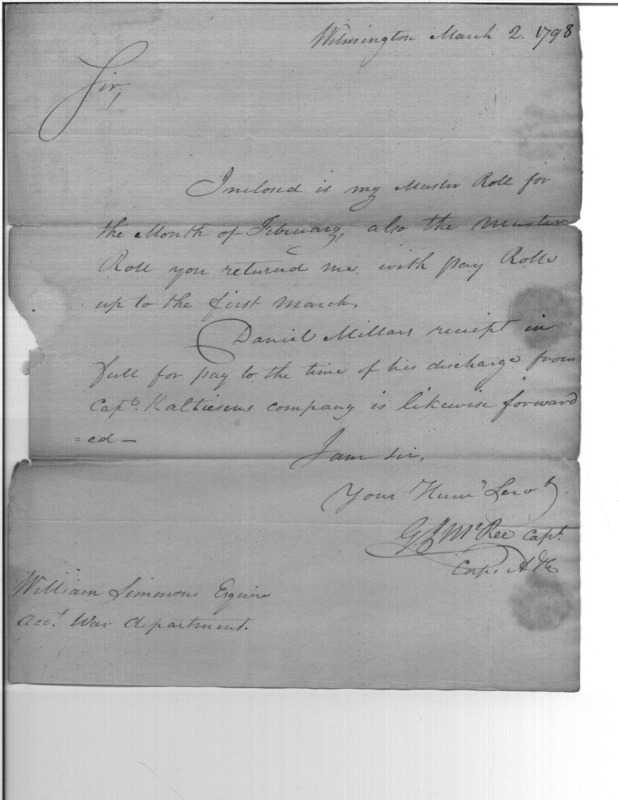 Wilmington March 2. 1798
Sir,
Inclosed is my Muster Roll for
the Month of February, also the Muster
Roll you returned me with pay Rolls
up to the first March.
Daniel Millars receipt in
full for pay to the time of his discharge from
Capt. Kalteisens company is likewise forward
=ed—
I am sir,
Your Hume Servt
G J McRee Capt.
Corps A & E
William Simmons Esquire
Acct. War department.